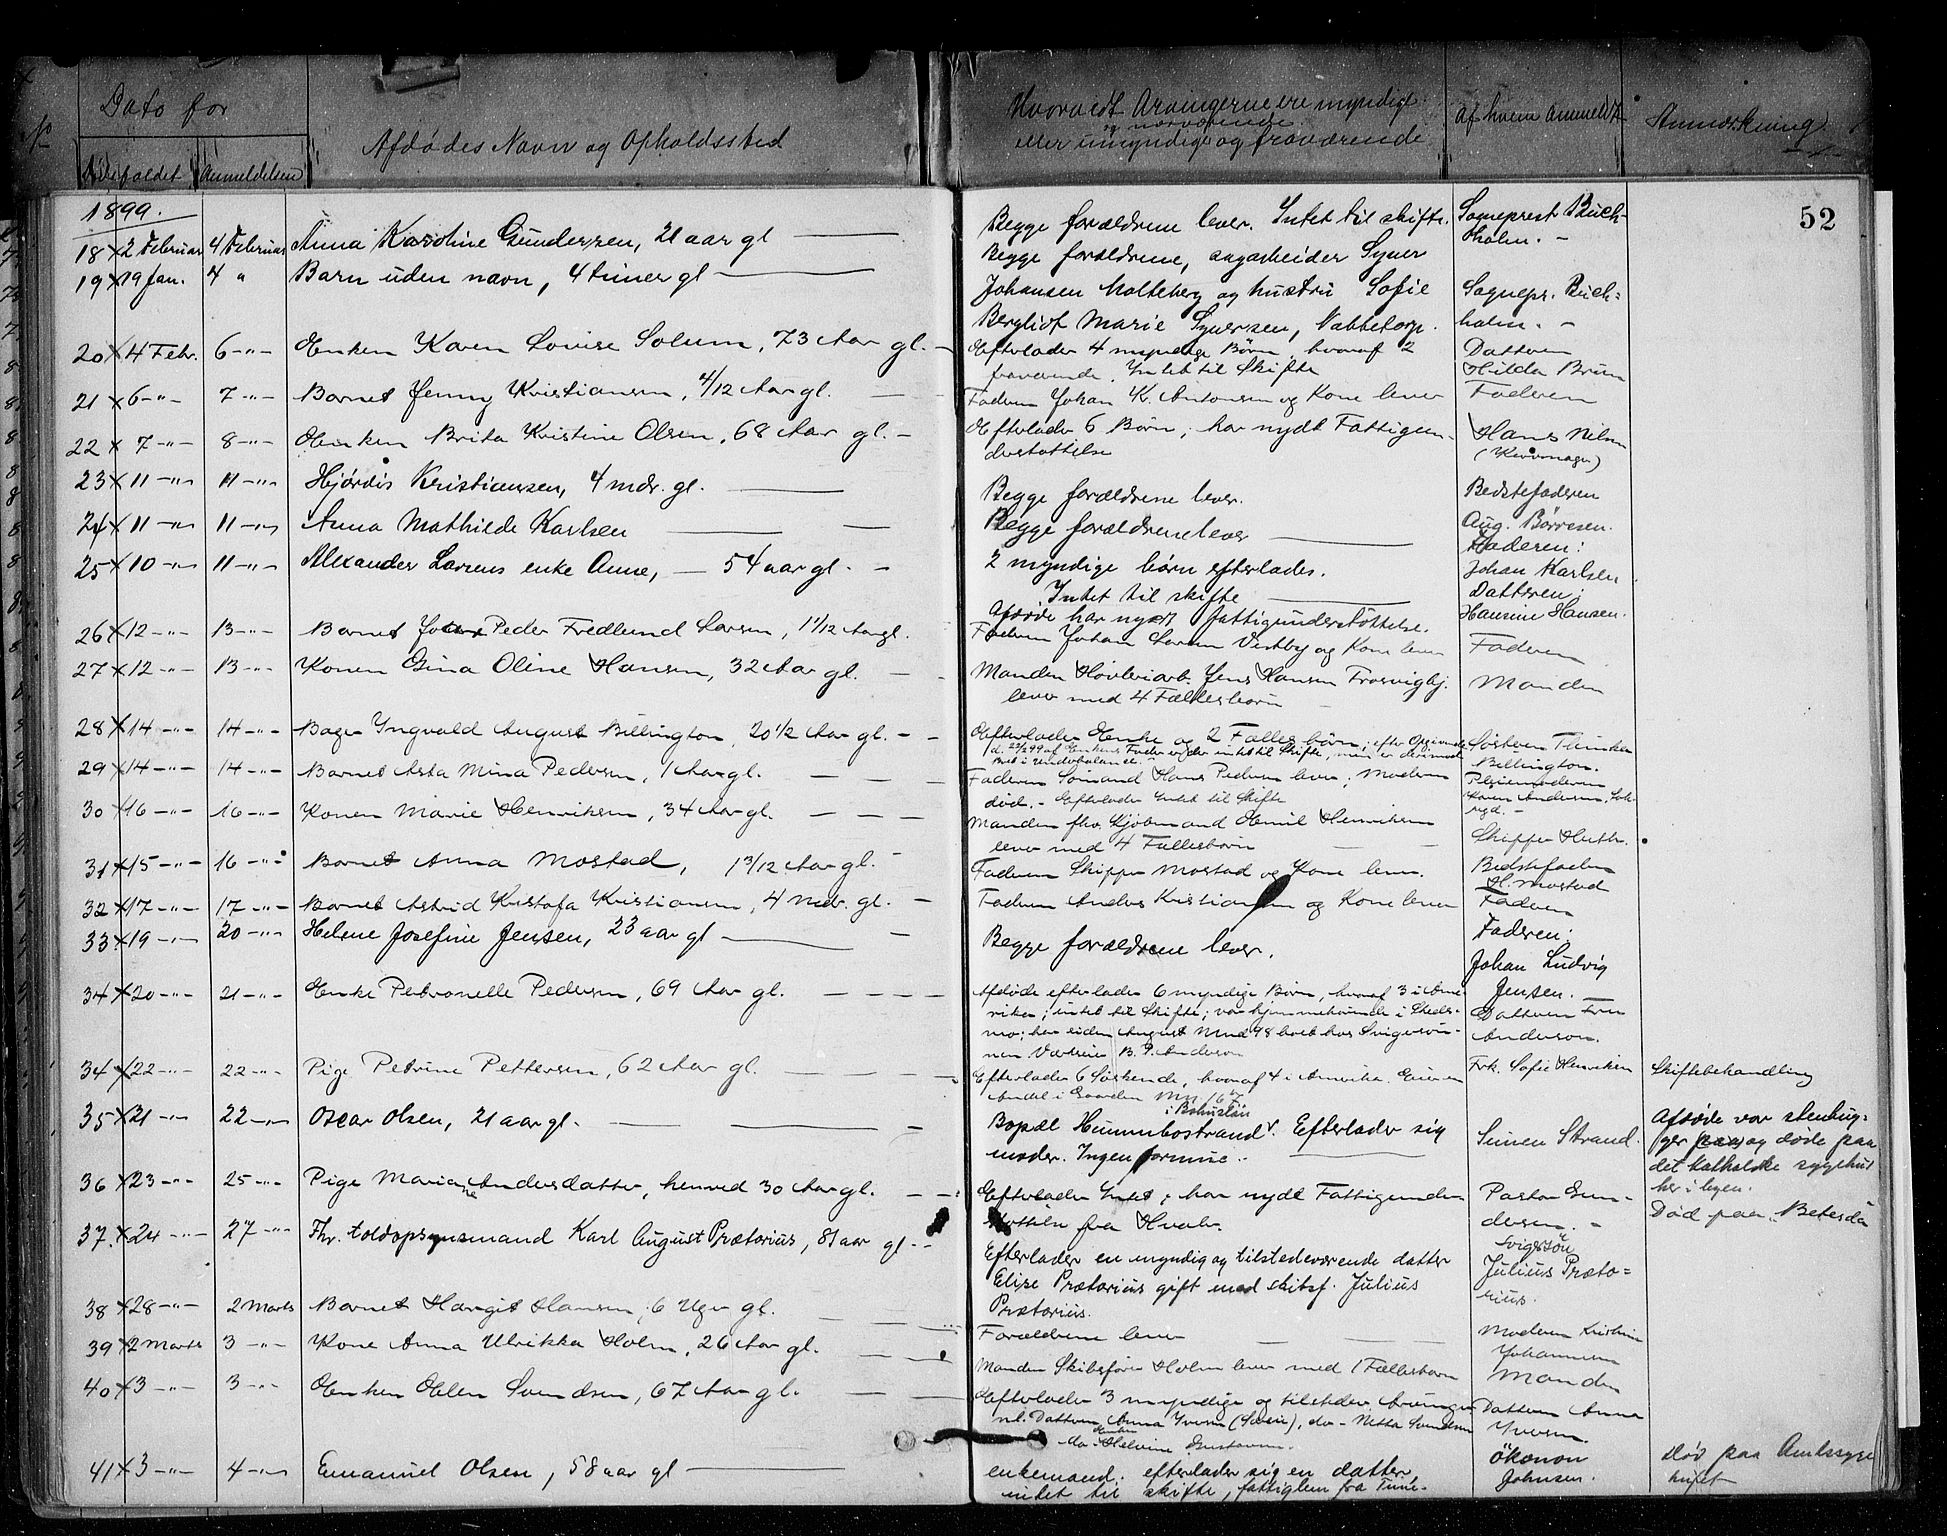 No
Dato for
Dødsfaldet
Anmeldelsen
Afdødes Navn og Opholdssted
Hvorvidt Arvingerne ere myndige
og nærværende
eller umyndige og fraværende
Af hvem anmeldt
Anmærkning
52
1899.
18 x 2 Februar 4 Februar Anna Karoline Gundersen, 21 aar gl
Begge forældrene lever. Intet til skifte.
Sogneprest Buch-
holm. -
19 x 19 Jan. 4 " Barn uden navn, 4 timer gl
Begge forældrene, sagarbeider Syver
Johansen Molteberg og hustru Sofie
Bergliot Marie Syversen, Nabbetorp.
Sognepr. Buch=
holm. -
20 x 4 Febr. 6 -"- Enken Karen Lovise Solum, 73 Aar gl. -
Efterlader 4 myndige Børn, hvoraf 2
fraværende. Intet til Skifte
Datteren
Hilda Brun
21 x 6 -"- 7 -"- Barnet Jenny Kristiansen, 4/12 Aar gl.
Faderen Johan K. Antonsen og Kone lever
Faderen
22 x 7 -"- 8 -"- Enken Brita Kristine Olsen, 68 Aar gl. -
Efterlader 6 Børn; har nydt Fattigun-
derstøttelse
Hans Nilsen
23 x 11 -"- 11 -"- Hjørdis Kristiansen, 4 mdr. gl.
Begge forældrene lever.
Bedstefaderen
Aug. Børresen.
24 x 11 -"- 11 -"- Anna Mathilde Karlsen
Begge forældrene lever
Faderen:
Johan Karlsen
25 x 10 -"- 11 -"- Alexander Larsens enke Anne, - 54 aar gl. -
2 myndige børn efterlades.
Intet til skifte
Afdøde har nydt fattigunderstøttelse.
Datteren:
Hansine Hansen.
26 x 12 -"- 13 -"- Barnet Peder Fredlund Larsen, 1 1/12 Aar gl.
Faderen Johan Larsen Vestby og Kone lever
Faderen
27 x 12 -"- 13 -"- Konen Gina Oline Hansen, 32 Aar gl.
Manden Høvleriarb. Jens Hansen Trosvigbj.
lever med 4 Fællesbørn
Manden
28 x 14 -"- 14 -"- Bager Yngvald August Billington, 20 1/2 Aar gl. - -
Efterlader Enke og 2 Fælles børn; efter Opgivende
af Enkens Fader er der intet til Skifte, men er derimod
Boet i Underbalance.
Søsteren
Billington.
29 x 14 -"- 14 -"- Barnet Asta Mina Pedersen, 1 Aar gl.
Faderen Sømand Hans Pedersen lever; Moderen
død. - Efterlader Intet til Skifte
Pleiemoderen
Karen Andersen,
30 x 16 -"- 16 -"- Konen Marie Henriksen, 34 Aar gl.
Manden fhv. Kjøbmand Emil Henriksen
lever med 4 Fællesbørn
Skipper
31 x 15 -"- 16 -"- Barnet Anna Mostad, 1 3/12 Aar gl.
Faderen Skipper Mostad og Kone lever.
Bedstefaderen
H. Mostad
32 x 17 -"- 17 -"- Barnet Astrid Kristofa Kristiansen, 4 mdr. gl. -
Faderen Anders Kristiansen og Kone lever
Faderen
33 x 19 -"- 20 -"- Helene Josefine Jensen, 23 aar gl
Begge forældrene lever.
Faderen:
Johan Ludvig
Jensen. -
34 x 20 -"- 21 -"- Enke Petronelle Pedersen, 69 Aar gl.
Afdøde efterlader 6 myndige Børn, hvoraf 3 i Ame-
rika; intet til Skifte; var hjemmehørende i Skeds-
mo; har siden August Mnd 98 boet hos Svigersøn-
nen B. P. Anderson
Datteren Fru
Anderson.
34 x 22 -"- 22 -"- Pige Petrine Pettersen, 62 Aar gl.
Efterlader 6 Søskende, hvoraf 4 i Amerika. Eier en
Andel i Gaarden
Frk. Sofie Henriksen
Skiftebehandling
35 x 21 -"- 22 -"- Oscar Olsen, 21 aar gl.
i Bohuslän
Bopæl Hunnebostrand. Efterlader sig
moder. Ingen formue.
Simen Strand.
Afdøde var stenhug-
ger og døde paa
det katholske sygehus
her i byen.
36 x 23 -"- 25 -"- Pige Mariane Andersdatter, henved 30 Aar gl.
Efterlader Intet; har nydt Fattigunder-
støttelse fra Hvaler.
Pastor Gun-
dersen. -
Død paa "Betesda
37. x 24 -"- 27 -"- Fhv. toldopsynsmand Karl August Prætorius, 81 aar gl. -
Efterlader en myndig og tilstedeværende datter
Elise Prætorius gift med skibsf. Julius
Prætorius.
Svigersøn
Julius Præto=
rius.
38 x 28 -"- 2 Marts Barnet Margit Hansen, 6 Uger gl.
Forældrene lever
Moderen Kristine
Johannesen
39 x 2 Marts 3 -"- Kone Anna Ulrikka Holm, 26 Aar gl.
Manden Skibsfører Holm lever med 1 Fællesbarn
Manden
40 x 3 -"- 3 -"- Enken Elen Svendsen, 67 Aar gl.
Efterlader 3 myndige og tilstedev. Arvinger
nl. Datteren Anna Iversen, do - Netta Svendsen
Enken
do - Helvine Gustavsen.
Datteren Anna
Iversen
41 x 3 -"- 4 -"- Emanuel Olsen, 58 aar gl
enkemand. efterlader sig en datter,
intet til skifte, fattiglem fra Tune.
økonom
Johnsen.
død paa Amtssyge
huset